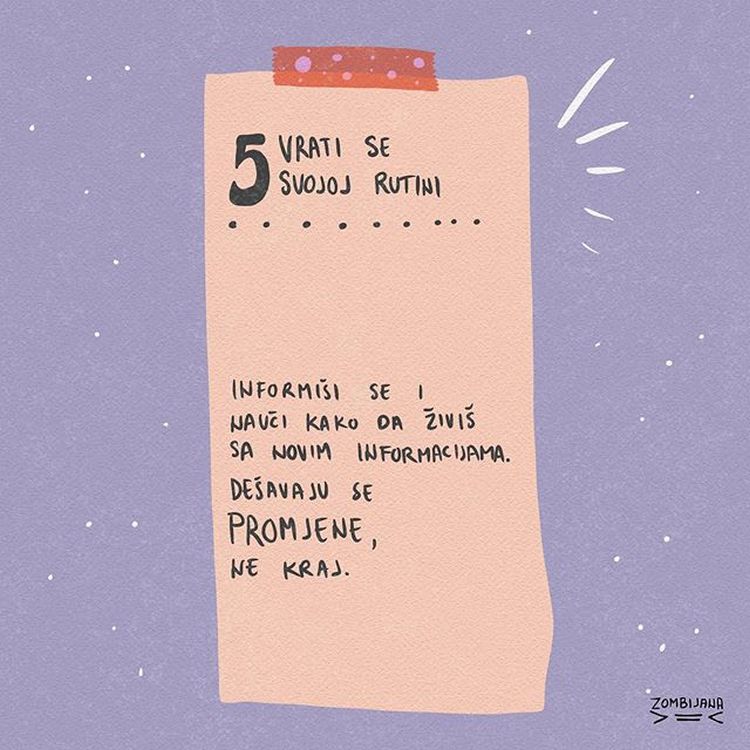 5 VRATI SE
SVOJOJ RUTINI
INFORMIŠI SE I
NAUČI KAKO DA ŽIVIŠ
SA NOVIM INFORMACIJAMA.
DEŠAVAJU SE
PROMJENE,
NE KRAJ.
ZOMBIJANA